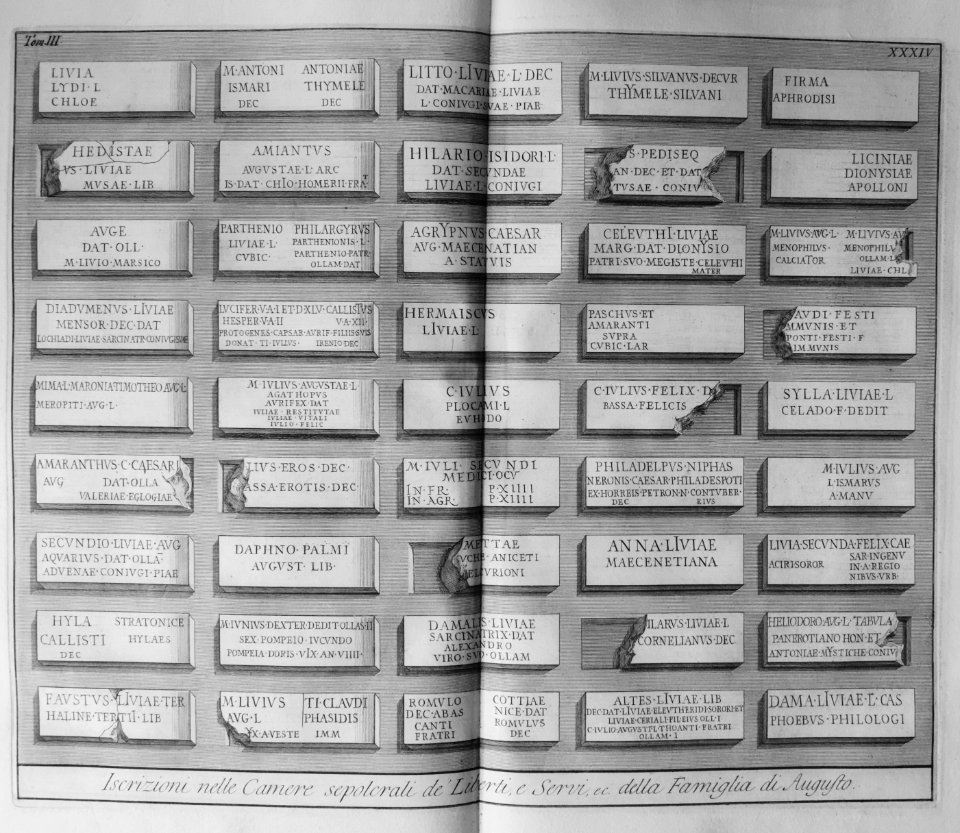 Tom. III
XXXIV
LIVIA
LYDI · L
CHLOE
M · ANTONI ANTONIAE
ISMARI THYMELE
DEC DEC
LITTO · LIVIAE · L · DEC
DAT · MACARIAE · LIVIAE
L · CONIVGI · SVAE · PIAE
M · LIVIVS · SILVANVS · DECVR
THYMELE · SILVANI
FIRMA
APHRODISI
HEDISTAE
VS · LIVIAE
MVSAE · LIB
AMIANTVS
AVGVSTAE · L · ARC
IS · DAT · CHIO · HOMERII · FRAT
HILARIO · ISIDORI · L
DAT · SECVNDAE
LIVIAE · L · CONIVGI
S · PEDISEQ
AN · DEC · ET · DAT
TVSAE · CONIV
LICINIAE
DIONYSIAE
APOLLONI
AVGE
DAT · OLL ·
M · LIVIO · MARSICO
PARTHENIO PHILARGYRVS
LIVIAE · L · PARTHENIONIS · L ·
CVBIC · PARTHENIO · PATR
OLLAM · DAT
AGRYPNVS · CAESAR
AVG · MAECENATIAN
A · STATVIS
CELEVTHI · LIVIAE
MARG · DAT · DIONYSIO
PATRI · SVO · MEGISTE · CELEVTHI
MATER
M · LIVIVS · AVG · L · M · LIVIVS · AV
MENOPHILVS · MENOPHILV
CALCIATOR OLLAM · L
LIVIAE · CHL
DIADVMENVS · LIVIAE
MENSOR · DEC · DAT
LOCHIADI · LIVIAE · SARCINATR · CONIVGI · SVAE
LVCIFER · V · A · I · ET · D · XLV · CALLISTVS
HESPER · V · A · II V · A · XII ·
PROTOGENES · CAESAR · AVRIF · FILIIS · SVIS
DONAT · TI · IVLIVS · IRENIO · DEC
HERMAISCVS
LIVIAE · L ·
PASCHVS · ET
AMARANTI
SVPRA
CVBIC · LAR
AVDI · FESTI
MMVNIS · ET
PONTI · FESTI · F
IMMVNIS
MIMA · L · MARONIA TIMOTHEO AVG · L
MEROPITI · AVG · L ·
M · IVLIVS · AVGVSTAE · L
AGATHOPVS
AVRIFEX · DAT
IVLIAE · RESTITVTAE
IVLIAE · VITALI
IVLIO · FELIC
C · IVLIVS
PLOCAMI · L
EVHODO
C · IVLIVS · FELIX · D
BASSA · FELICIS
SYLLA · LIVIAE · L
CELADO · F · DEDIT
AMARANTHVS · C · CAESARI
AVG DAT · OLLA
VALERIAE · EGLOGIAE
LIVS · EROS · DEC ·
ASSA · EROTIS · DEC
M · IVLI · SECVNDI
MEDICI · OCV
IN · FR · P · XIIII
IN · AGR · P · XIIII
PHILADELPVS · NIPHAS
NERONIS · CAESAR · PHILADESPOTI
EX · HORREIS · PETRON · N · CONTVBER ·
DEC RIVS
M · IVLIVS · AVG
L · ISMARVS
A · MANV
SECVNDIO · LIVIAE · AVG
AQVARIVS · DAT · OLLA ·
ADVENAE · CONIVGI · PIAE
DAPHNO · PALMI
AVGVST · LIB ·
METTAE
YCHE · ANICETI
MELLVRIONI
ANNA · LIVIAE
MAECENETIANA
LIVIA · SECVNDA · FELIX · CAE
SAR · INGENV
ACIRISOROR IN · A · REGIO
NIBVS · VRB ·
HYLA STRATONICE
CALLISTI HYLAES
DEC
M · IVNIVS · DEXTER · DEDIT · OLLAS · II
SEX · POMPEIO · IVCVNDO
POMPEIA · DORIS · VIX · AN · VIIII ·
DAMALIS · LIVIAE
SARCINATRIX · DAT
ALEXANDRO
VIRO · SVO · OLLAM
ILARVS · LIVIAE · L
CORNELIANVS · DEC
HELIODORO AVG · L · TABVLA
PANEROTIANO HON · ET
ANTONIAE · MYSTICHE · CONIV
FAVSTVS · LIVIAE · TER
HALINE · TERTII · LIB
M · LIVIVS TI · CLAVDI
AVG · L PHASIDIS
YX · AVESTE IMM
ROMVLO COTTIAE
DEC · ABAS NICE · DAT
CANTI ROMVLVS
FRATRI DEC
ALTES · LIVIAE · LIB
DEC · DAT · LIVIAE · ELEVTHERIDI · SORORI · ET
LIVIAE · CERIALI · FIL · EIVS · OLL · I
C · IVLIO · AVGVSTI · L · THOANTI · FRATRI
OLLAM · I
DAMA · LIVIAE · L · CAS
PHOEBVS · PHILOLOGI
Iscrizioni nelle Camere sepolcrali de' Liberti, e Servi, ec. della Famiglia di Augusto.